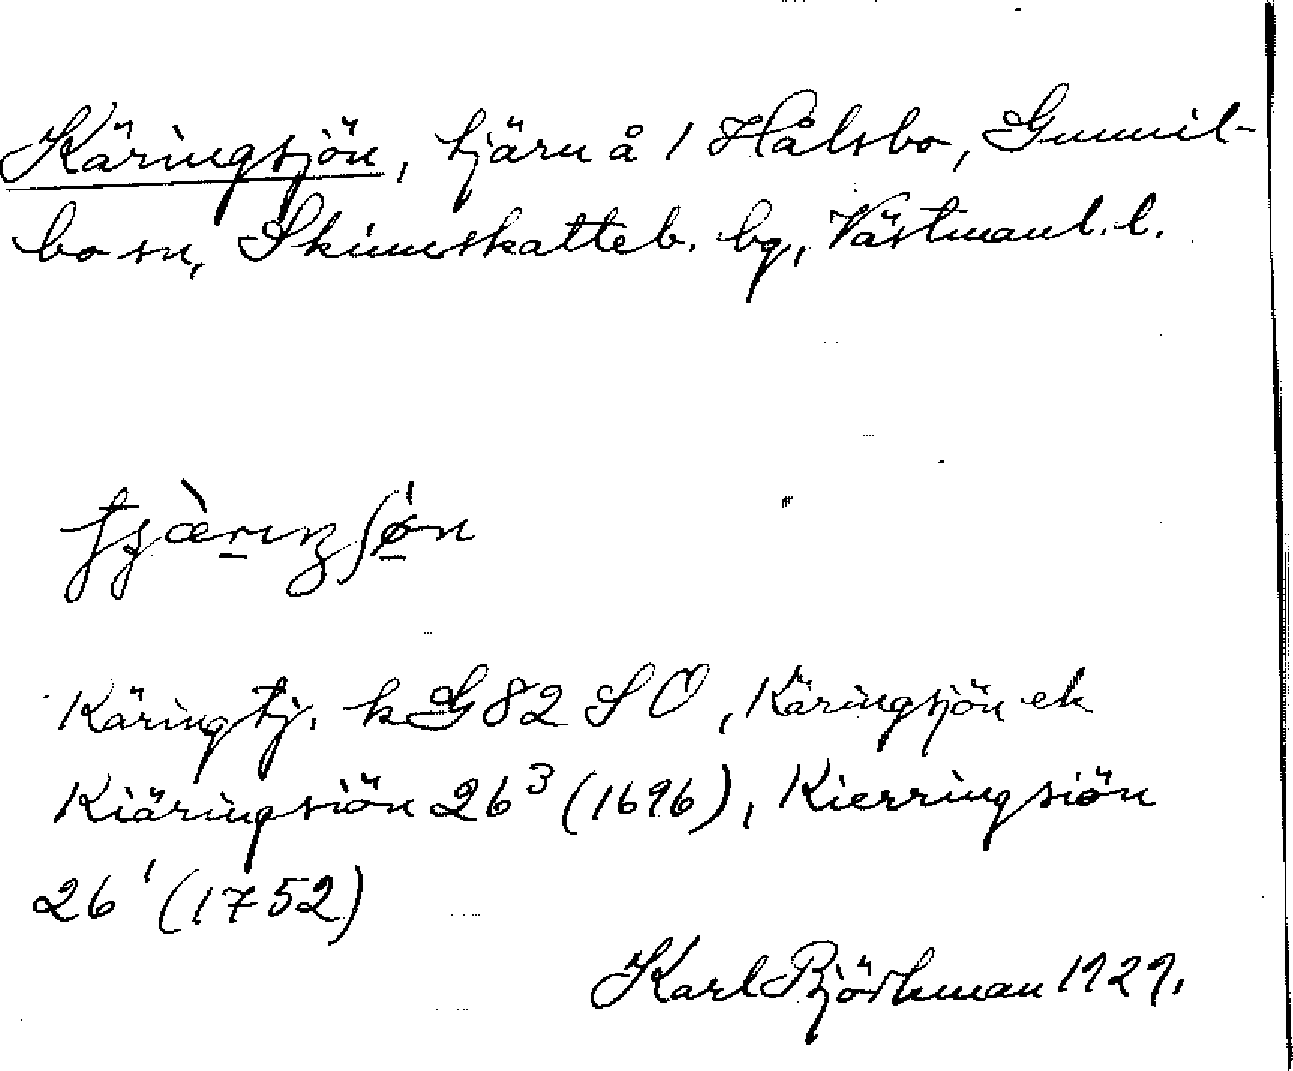 Käringsjön, tjärn å 1 Hålsbo, Gunnil-
bo sn, Skinnskatteb. bg, Västmanl. l.
Käringtj. k G 82 SO, Käringsjön ek
Kiäringsiön 26³ (1696), Kierringsiön
26¹ (1752)
Karl Björkman 1929.